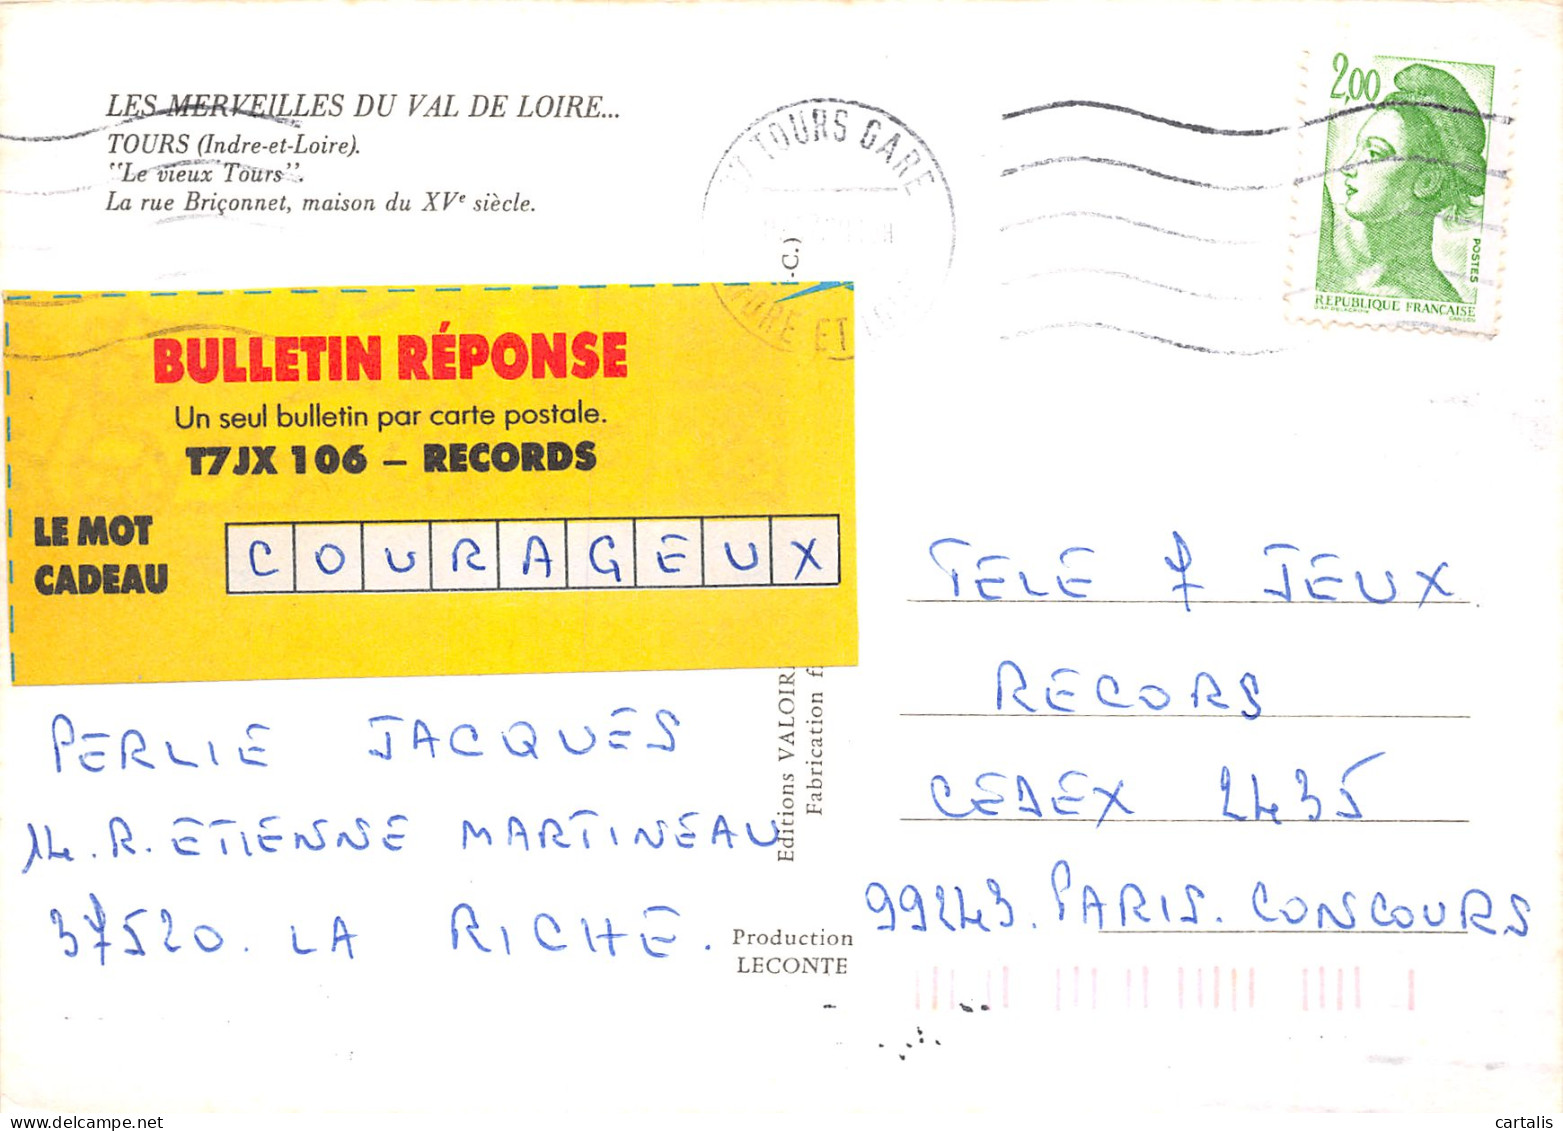 LES MERVEILLES DU VAL DE LOIRE...
TOURS (Indre-et-Loire).
"Le vieux Tours".
La rue Briçonnet, maison du XVe siècle.
37 TOURS GARE
2,00
POSTES
REPUBLIQUE FRANÇAISE
-C.)
BULLETIN RÉPONSE
Un seul bulletin par carte postale.
T7JX 106 – RECORDS
LE MOT
CADEAU
COURAGEUX
TELE 7 JEUX
RECORS
CEDEX 2435
99243. PARIS. CONCOURS
PERLIE JACQUES
14. R. ETIENNE MARTINEAU
37520. LA RICHE.
Editions VALOIR
Fabrication
Production
LECONTE
cartalis